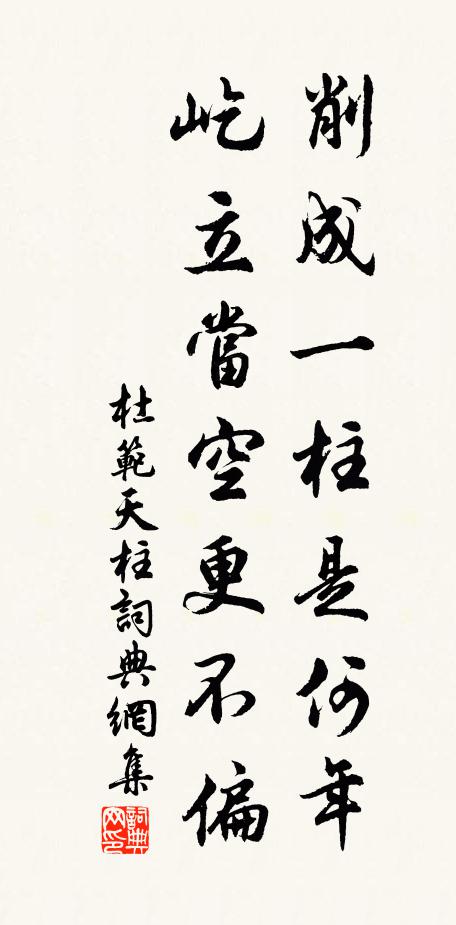 削成一柱是何年
屹立當空更不偏
杜範天柱詞典網集
詞典网印